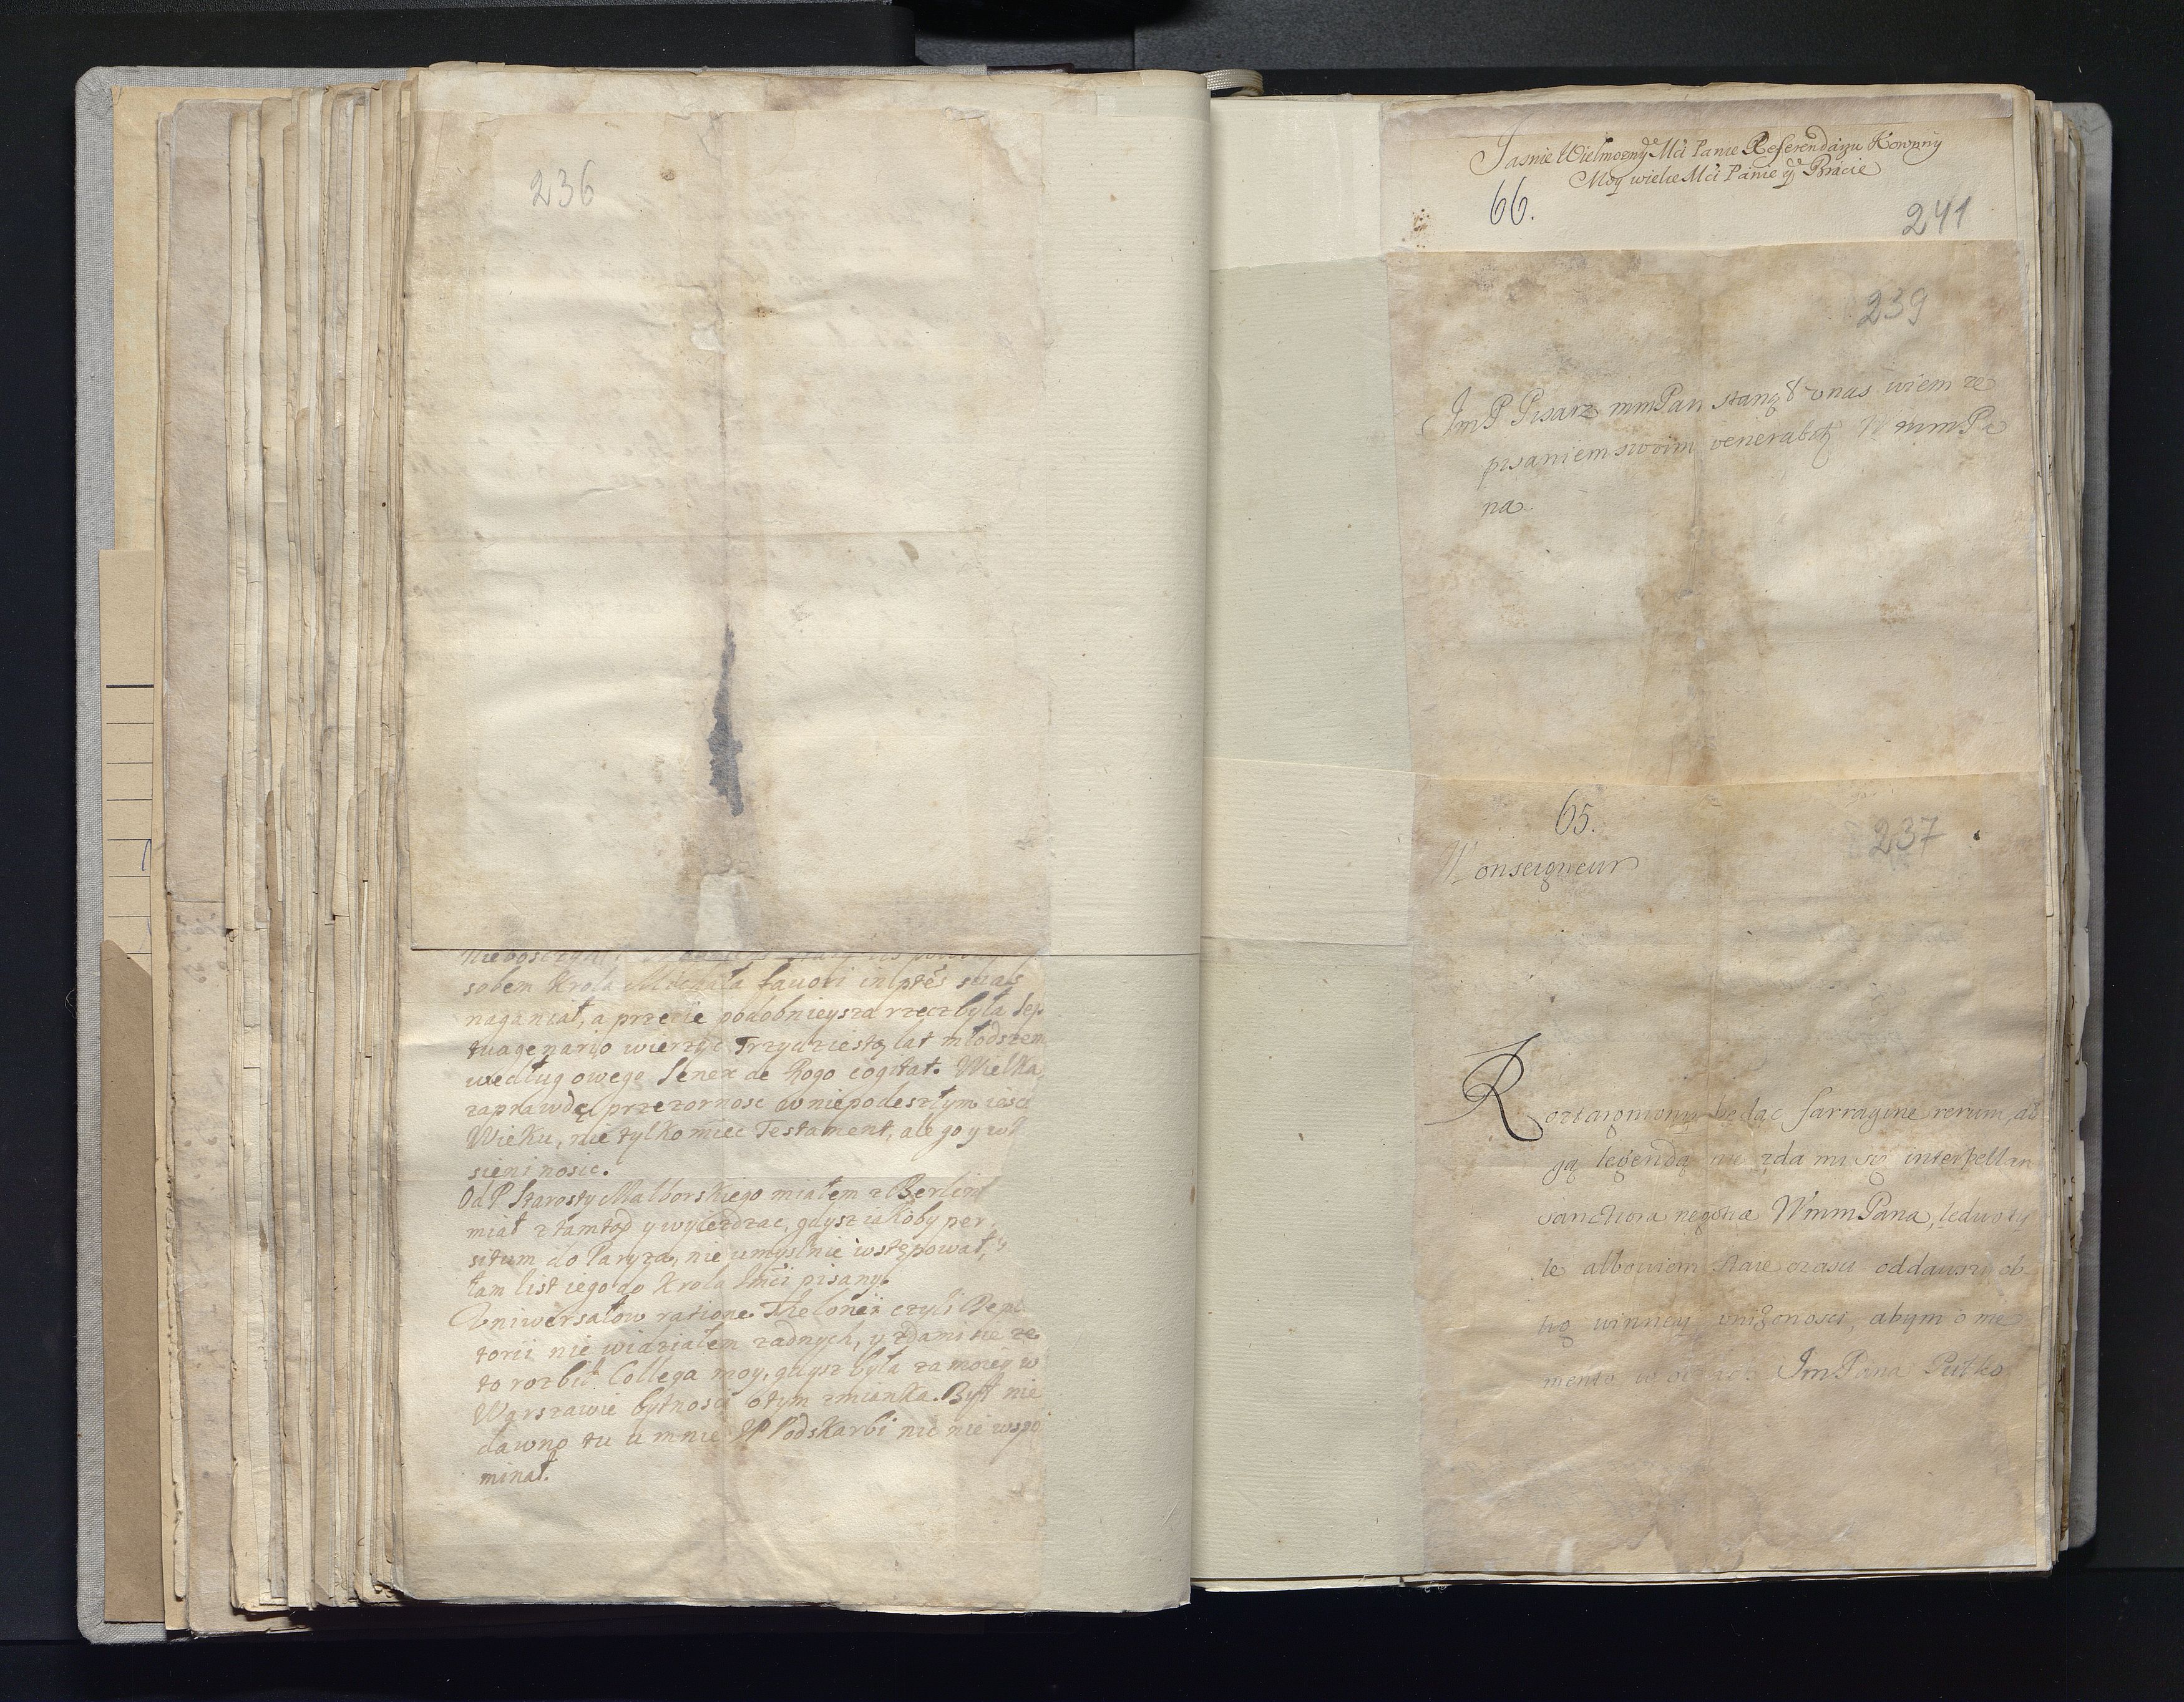 236
sobem Krola Michała favori in ptês suas
naganiał, a przecie podobnieysza rzecz była Sep
tuagenario wierzyc Trzydziestą lat młodszem
według owego Senex de Rogo cogitat. Wielka
zaprawdę przezornosc w niepodeszłym iesc
Wieku, nie tylko miec Testament, ale go y w k
sieni nosic.
Od P Starosty Malborskiego miałem z Berlin
miał z tamtąd y wyiezdzac, gdysz iakoby per
situm do Paryza, nie umyslnie wstępował,
tam list iego do Krola Jmći pisany.
Vniwersałow ratione Thelonii czyli Rep
torii nie widziałem zadnych, y zda mi sie ze
to rozbił Collega moy, gdysz była za moiey w
Warszawie bytnosci o tym zmianka. Był nie
dawno tu u mnie JP Podskarbi nic nie wspo
minał.
Jasnie Wielmozny Mći Panie Referendarzu Koronny
Moy wielce Mći Panie y Bracie
66.
241
239
JmP Pisarz mmPan stanął v nas wiem ze
pisaniem swoim venerabit WmmPa
na.
65.
237
Monseigneur
Roztargniony będąc farragine rerum, ad
gą legendą nie zda mi się interpellare
sanctiora negotia WmmPana, ledwo ty
le albowiem staie czasu oddawszy ob
winney vnizonosci, abym o me
mento JmPana Pułko